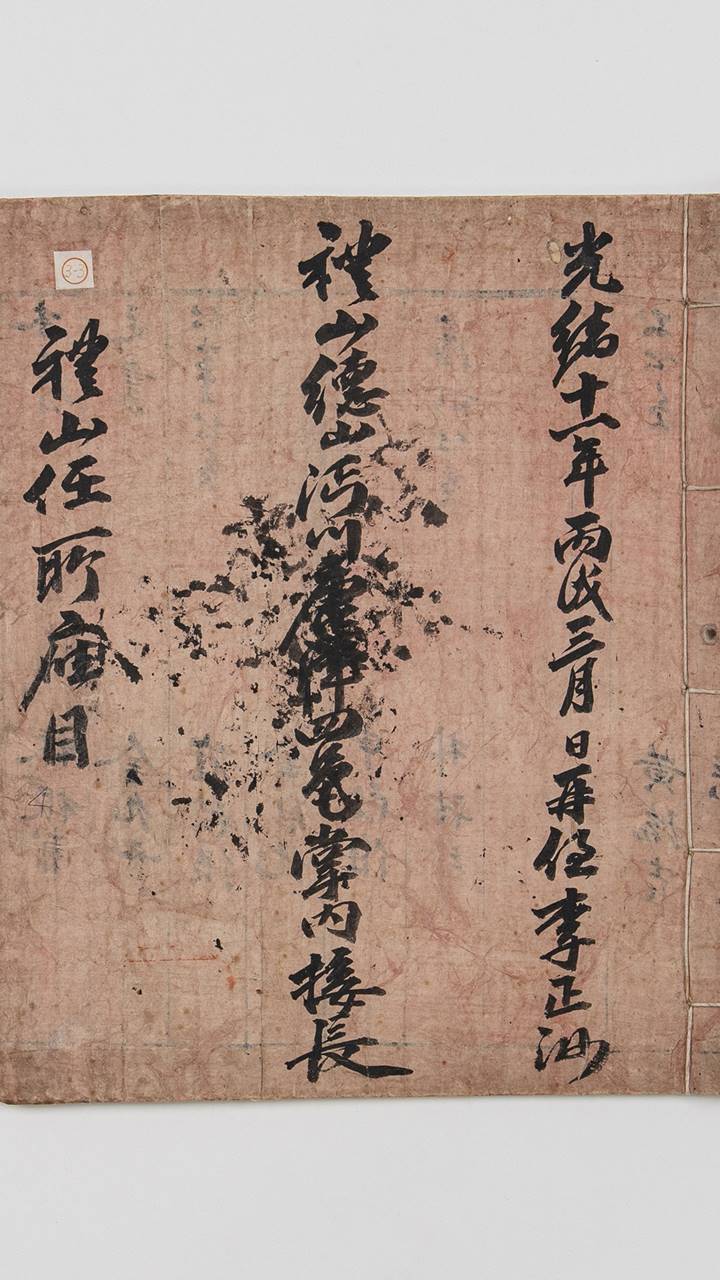 光緖十二年丙戌三月 日再任李正
禮山德山沔川唐津四邑掌內接長
禮山任所座目
3-3